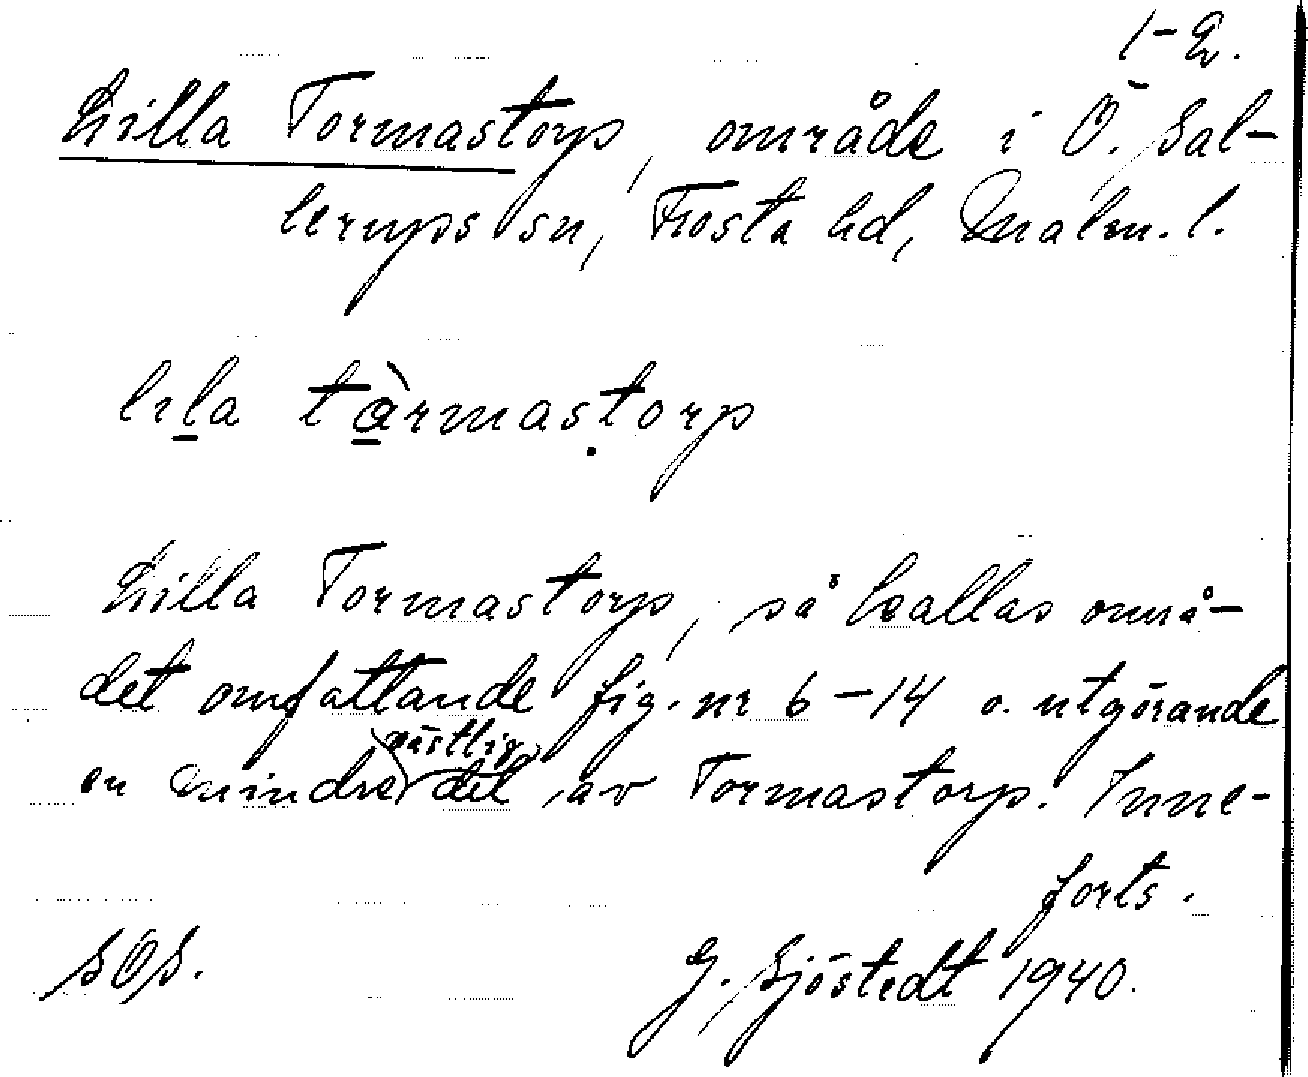 1-2.
Lilla Tormastorp, område i Ö. Sal-
lerups sn, Frosta hd, Malm. l.
lila tàrmastorp
Lilla Tormastorp, så kallas områ-
det omfattande fig. nr 6-14 o. utgörande
en mindre östlig del av Tormastorp. Inne-
forts.
SOS.
G. Sjöstedt 1940.